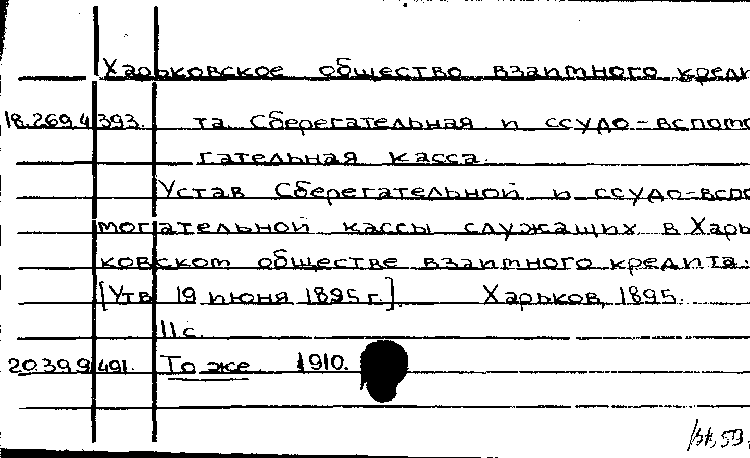 Харьковское общество взаимного креди
18.269.4 393. та. Сберегательная и ссудо-вспомо
гательная касса.
Устав Сберегательной и ссудо-вспо
могательной кассы служащих в Харь
ковском обществе взаимного кредита.
[Утв. 19 июня 1895 г.]. Харьков, 1895.
11 с.
20.39.9 491. То же. 1910.